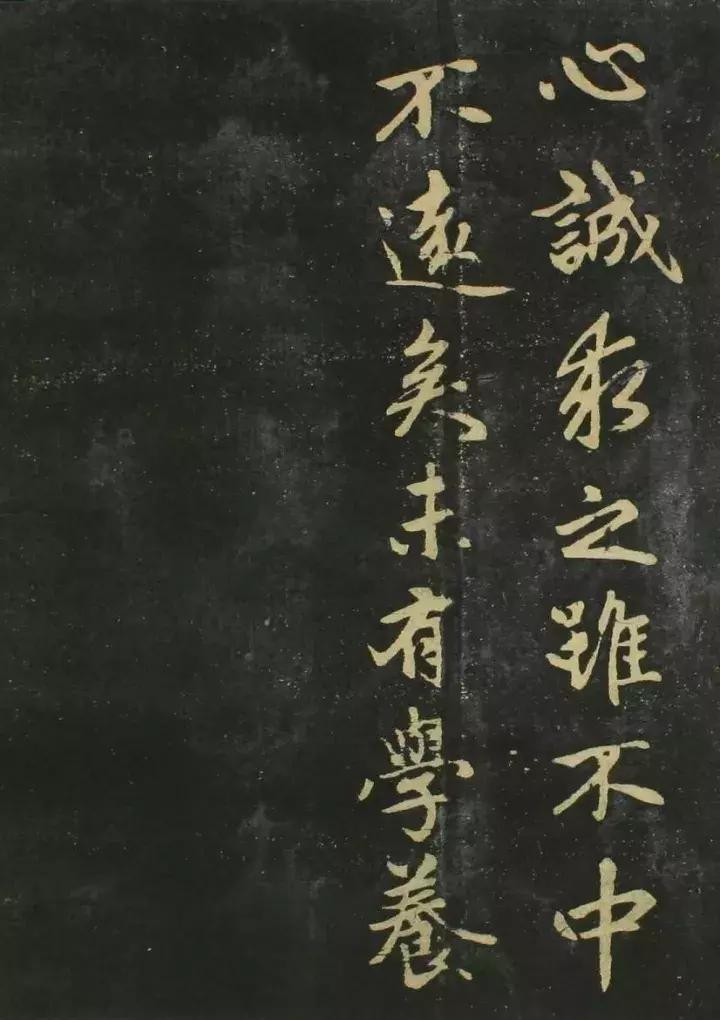 心誠求之雖不中
不遠矣未有學養